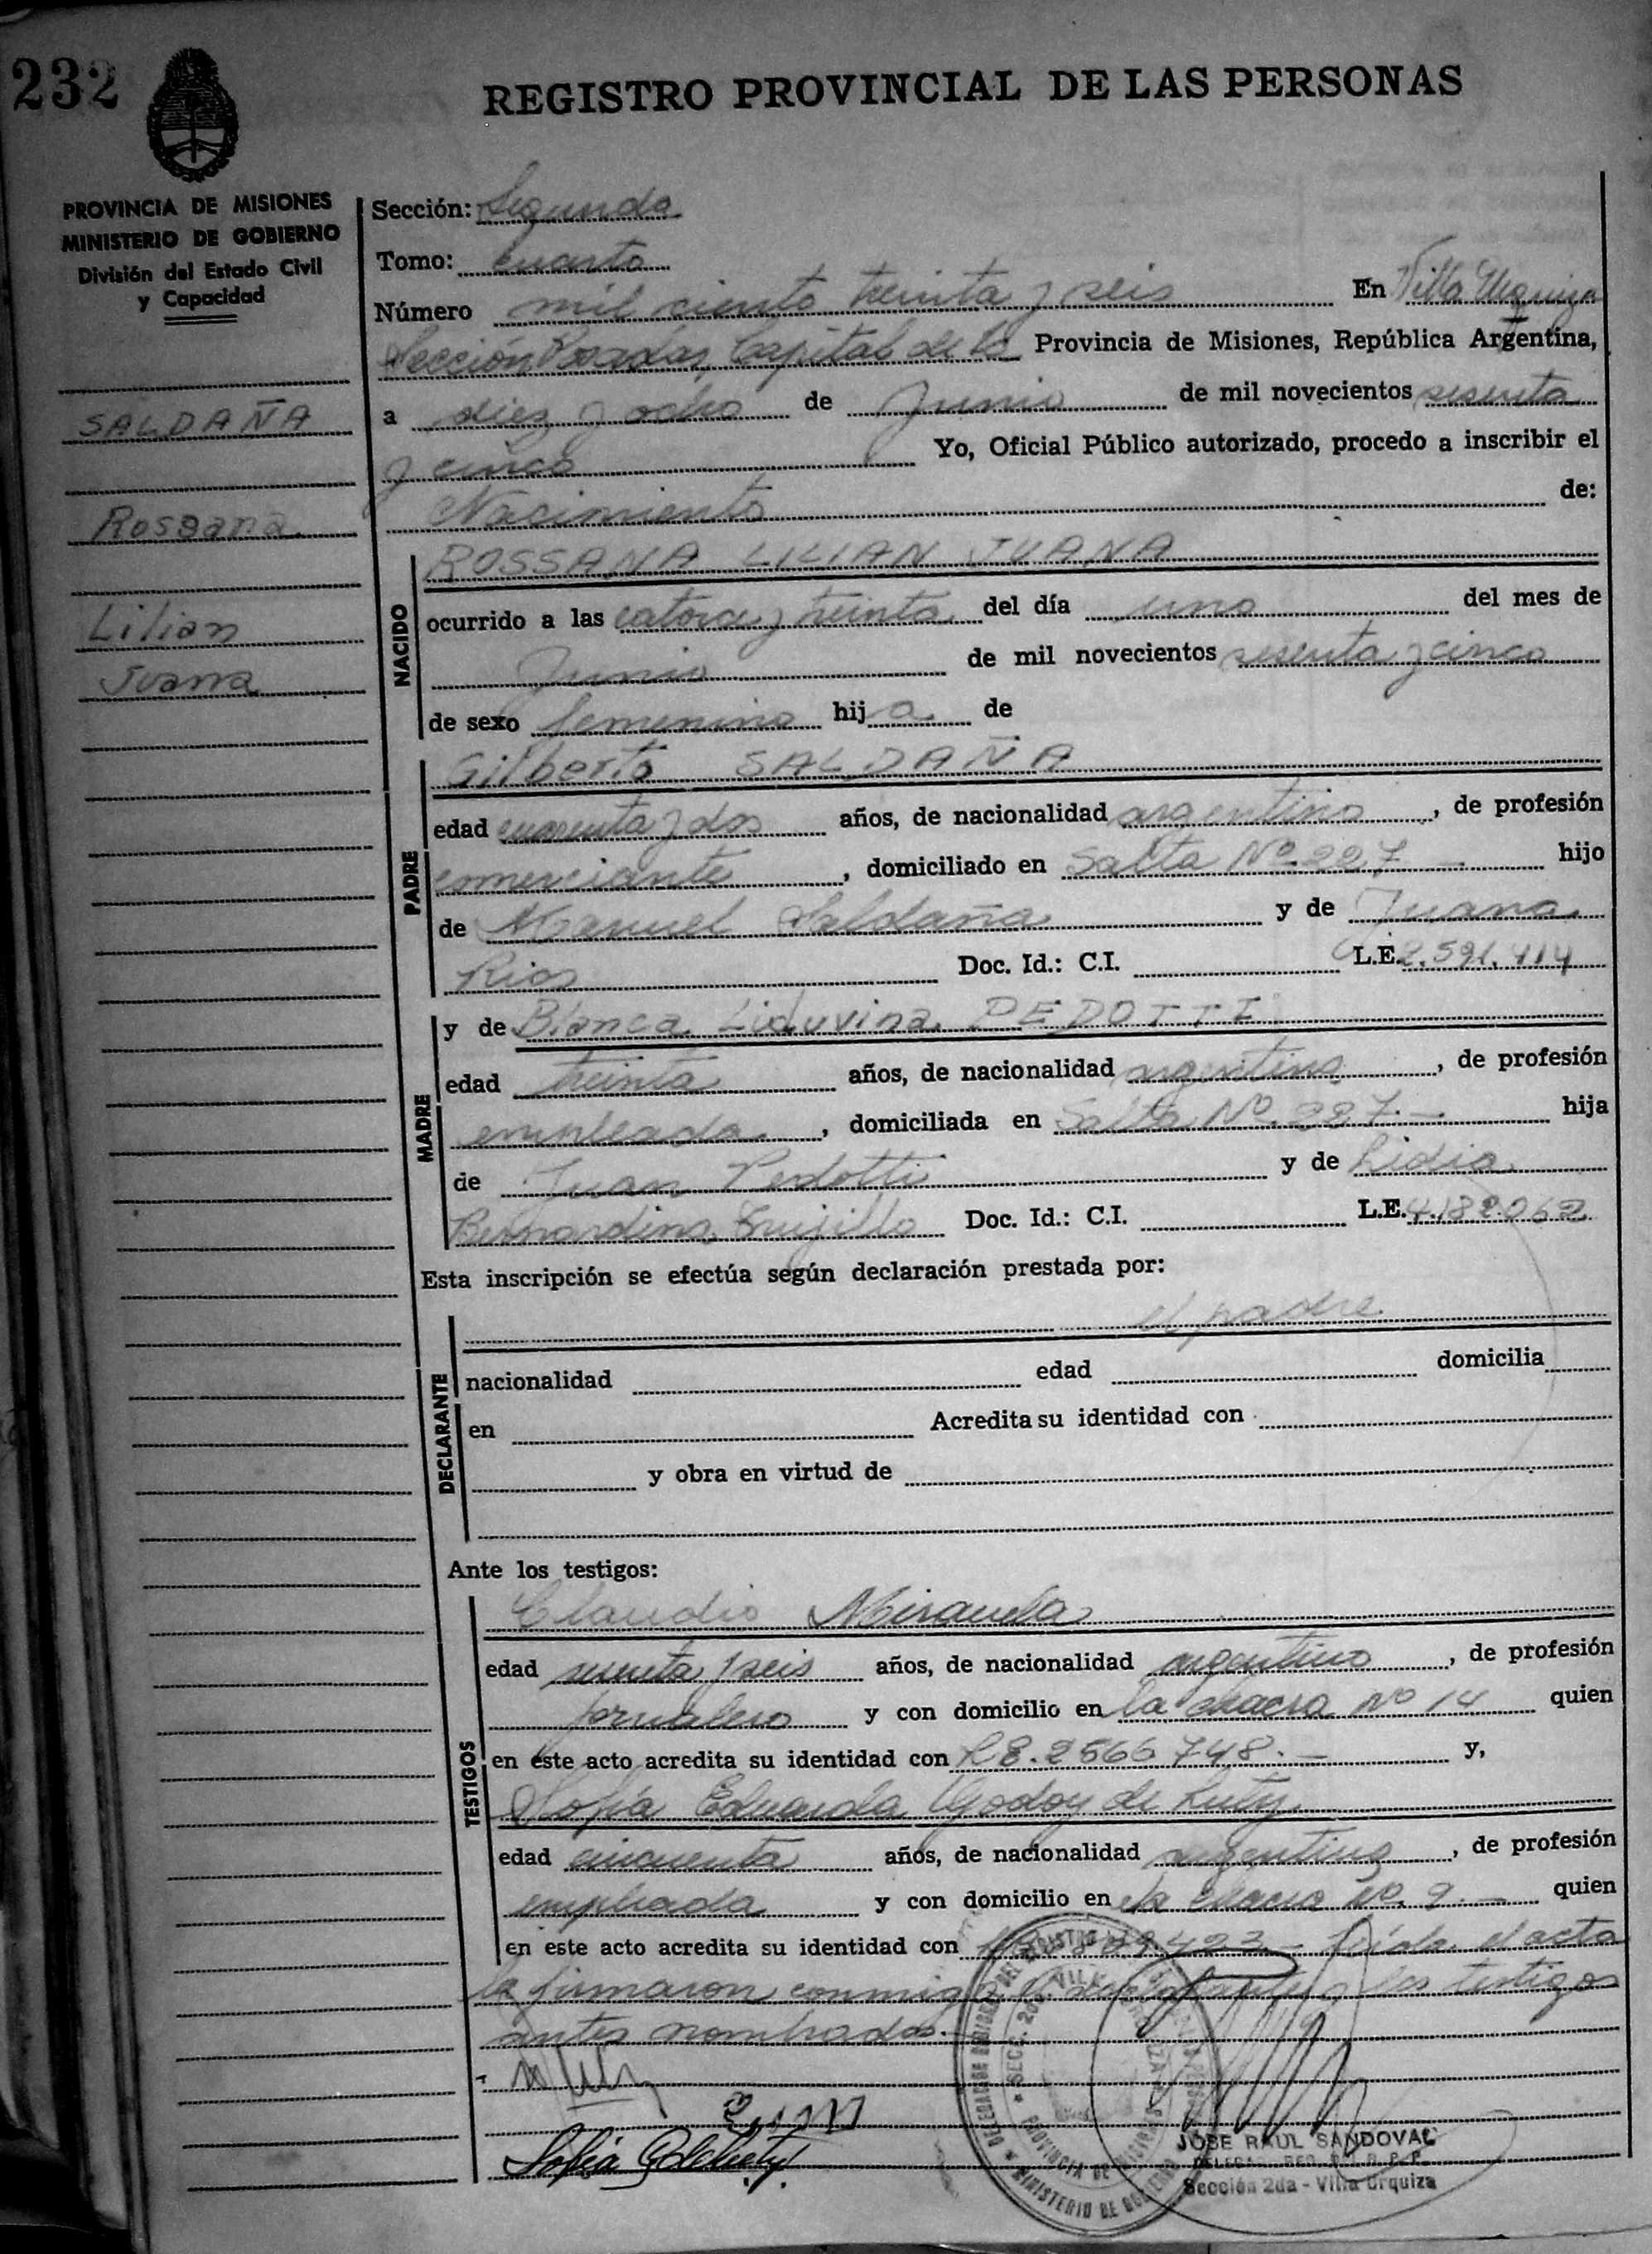 232
REGISTRO PROVINCIAL DE LAS PERSONAS
PROVINCIA DE MISIONES
MINISTERIO DE GOBIERNO
División del Estado Civil
y Capacidad
SALDAÑA
Rossana
Lilian
Juana
Sección: Segunda
Tomo: cuarto
Número mil ciento treinta y seis En Villa Urquiza
Sección Posadas, Capital de la Provincia de Misiones, República Argentina,
a diez y ocho de Junio de mil novecientos sesenta
y cinco Yo, Oficial Público autorizado, procedo a inscribir el
Nacimiento de:
NACIDO
ROSSANA LILIAN JUANA
ocurrido a las catorce y treinta del día uno del mes de
Junio de mil novecientos sesenta y cinco
de sexo femenino hija de
PADRE
Gilberto SALDAÑA
edad cuarenta y dos años, de nacionalidad argentino, de profesión
comerciante, domiciliado en Salta Nº 227 — hijo
de Manuel Saldaña y de Juana
Rios Doc. Id.: C.I. L.E. 2.591.414
MADRE
y de Blanca Liduvina PEDOTTI
edad treinta años, de nacionalidad argentina, de profesión
empleada, domiciliada en Salta Nº 227.— hija
de Juan Pedotti y de Lidia
Bernardina Trujillo Doc. Id.: C.I. L.E. 4.182.062
Esta inscripción se efectúa según declaración prestada por:
DECLARANTE
el padre
nacionalidad edad domicilia
en Acredita su identidad con
y obra en virtud de
Ante los testigos:
TESTIGOS
Claudio Miranda
edad sesenta y seis años, de nacionalidad argentino, de profesión
jornalero y con domicilio en la chacra Nº 14 quien
en este acto acredita su identidad con LE. 2566748.— y,
Sofía Eduarda Godoy de Luty
edad cincuenta años, de nacionalidad argentina, de profesión
empleada y con domicilio en la chacra Nº 9.— quien
en este acto acredita su identidad con Leída el acta
la firmaron conmigo los testigos
antes nombrados.—
SEC. 2da VILLA
PROVINCIA DE
MINISTERIO DE GOBIERNO
JOSE RAUL SANDOVAL
Sección 2da - Villa Urquiza